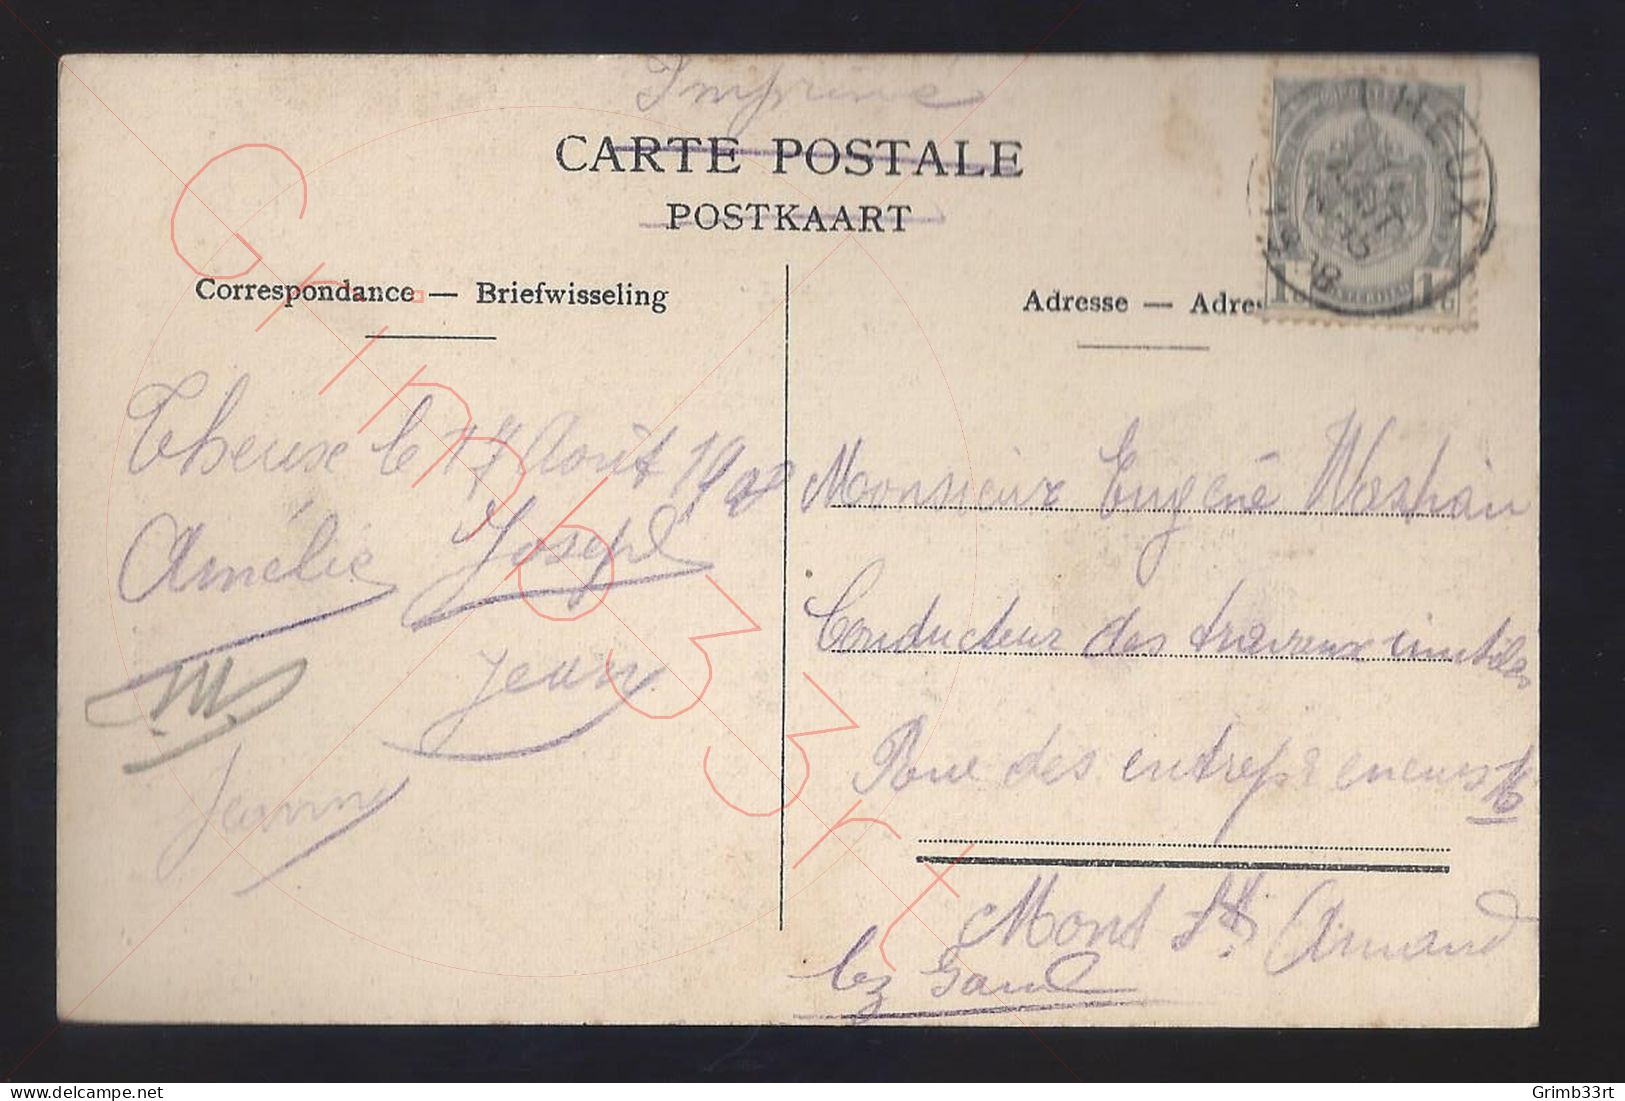 Imprimé
CARTE POSTALE
POSTKAART
Correspondance — Briefwisseling
Adresse — Adres
THEUX
18
08
1c 1c
Theux le 17 Août 1908
Amélie Joseph
Jean
Jeanne
Monsieur Eugéne
Conducteur des travaux
Rue des entrepreneurs 16
Mont St Amand
lez Gand
Grimb33rt
Grimb33rt